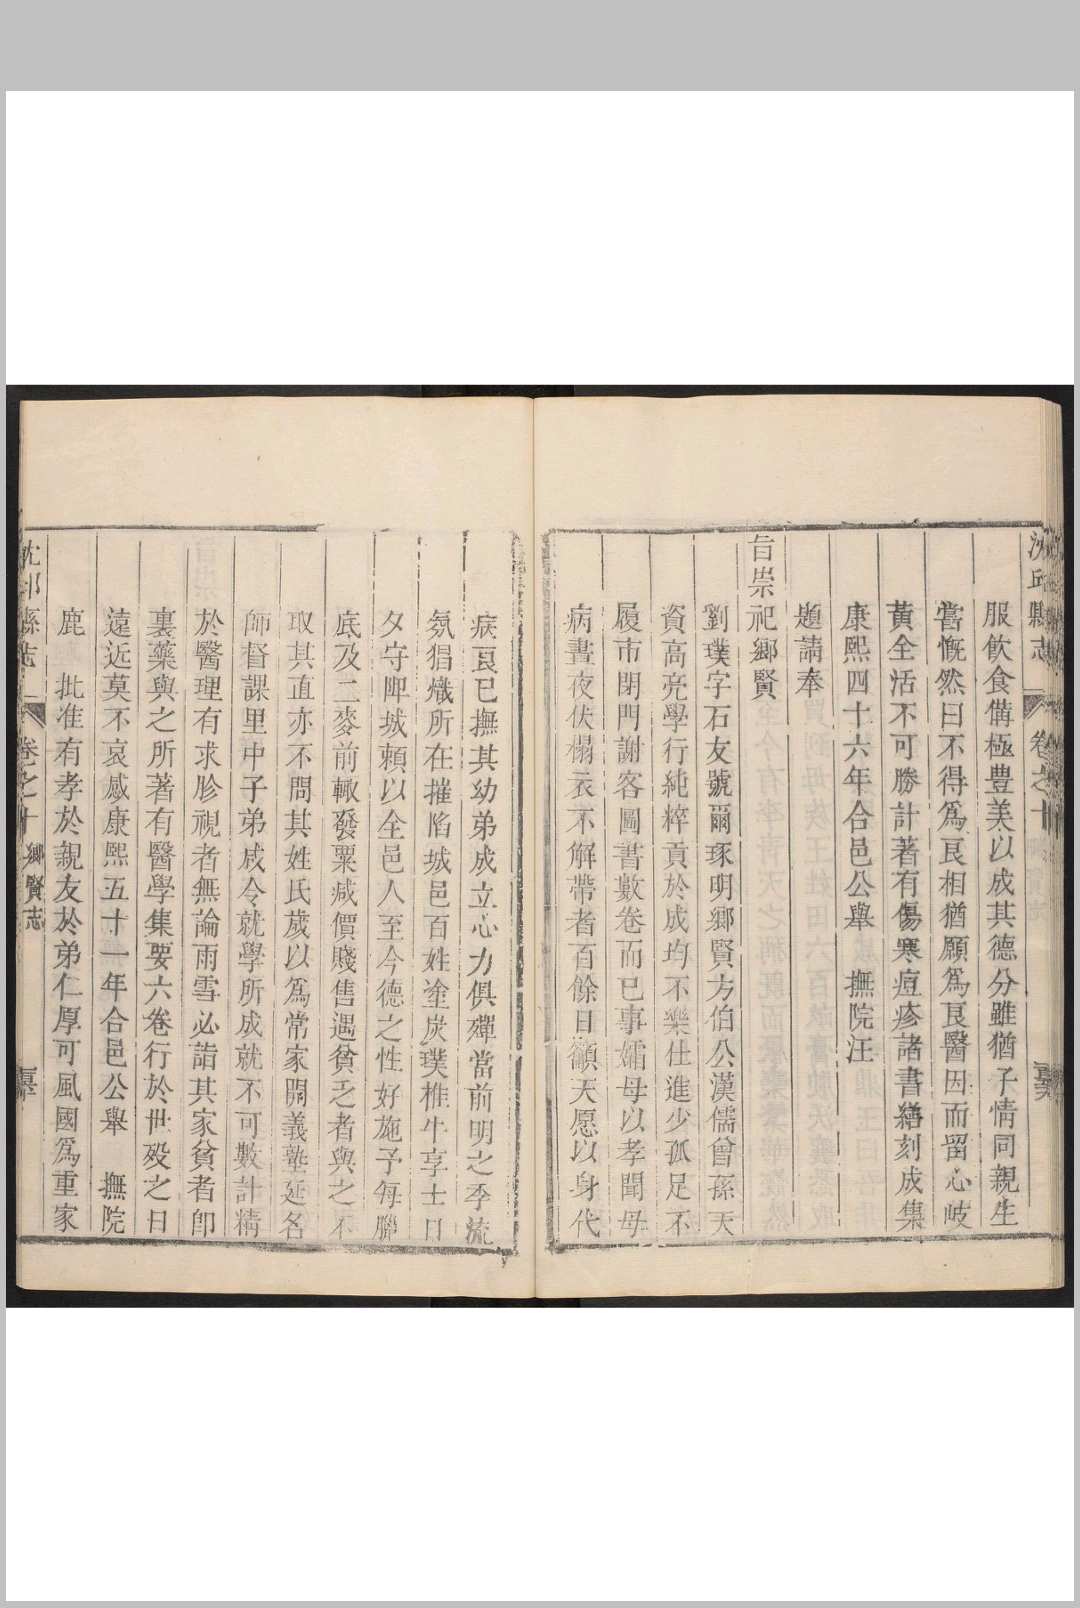 沈邱縣志 卷之十
服飲食備極豊美以成其德分雖猶子情同親生
嘗慨然曰不得爲良相猶願爲良醫因而留心岐
黃全活不可勝計著有傷寒痘疹諸書繕刻成集
康熙四十六年合邑公舉 撫院汪
題請奉
旨崇祀鄉賢
劉璞字石友號爾琢明鄉賢方伯公漢儒曾孫天
資高亮學行純粹貢於成均不樂仕進少孤足不
履市閉門謝客圖書數卷而已事孀母以孝聞母
病晝夜伏榻衣不解帶者百餘日籲天愿以身代
病良已撫其幼弟成立心力俱殫當前明之季流
氛猖熾所在摧陷城邑百姓塗炭璞椎牛享士日
夕守陴城頼以全邑人至今德之性好施予每臘
底及二麥前輙發粟减價賤售遇貧乏者與之不
取其直亦不問其姓氏歲以爲常家開義塾延名
師督課里中子弟咸令就學所成就不可數計精
於醫理有求胗視者無論雨雪必詣其家貧者卽
裹藥與之所著有醫學集要六卷行於世歿之日
遠近莫不哀感康熙五十一年合邑公舉 撫院
鹿 批准有孝於親友於弟仁厚可風國爲重家
沈邱縣志 卷之十 鄉賢志